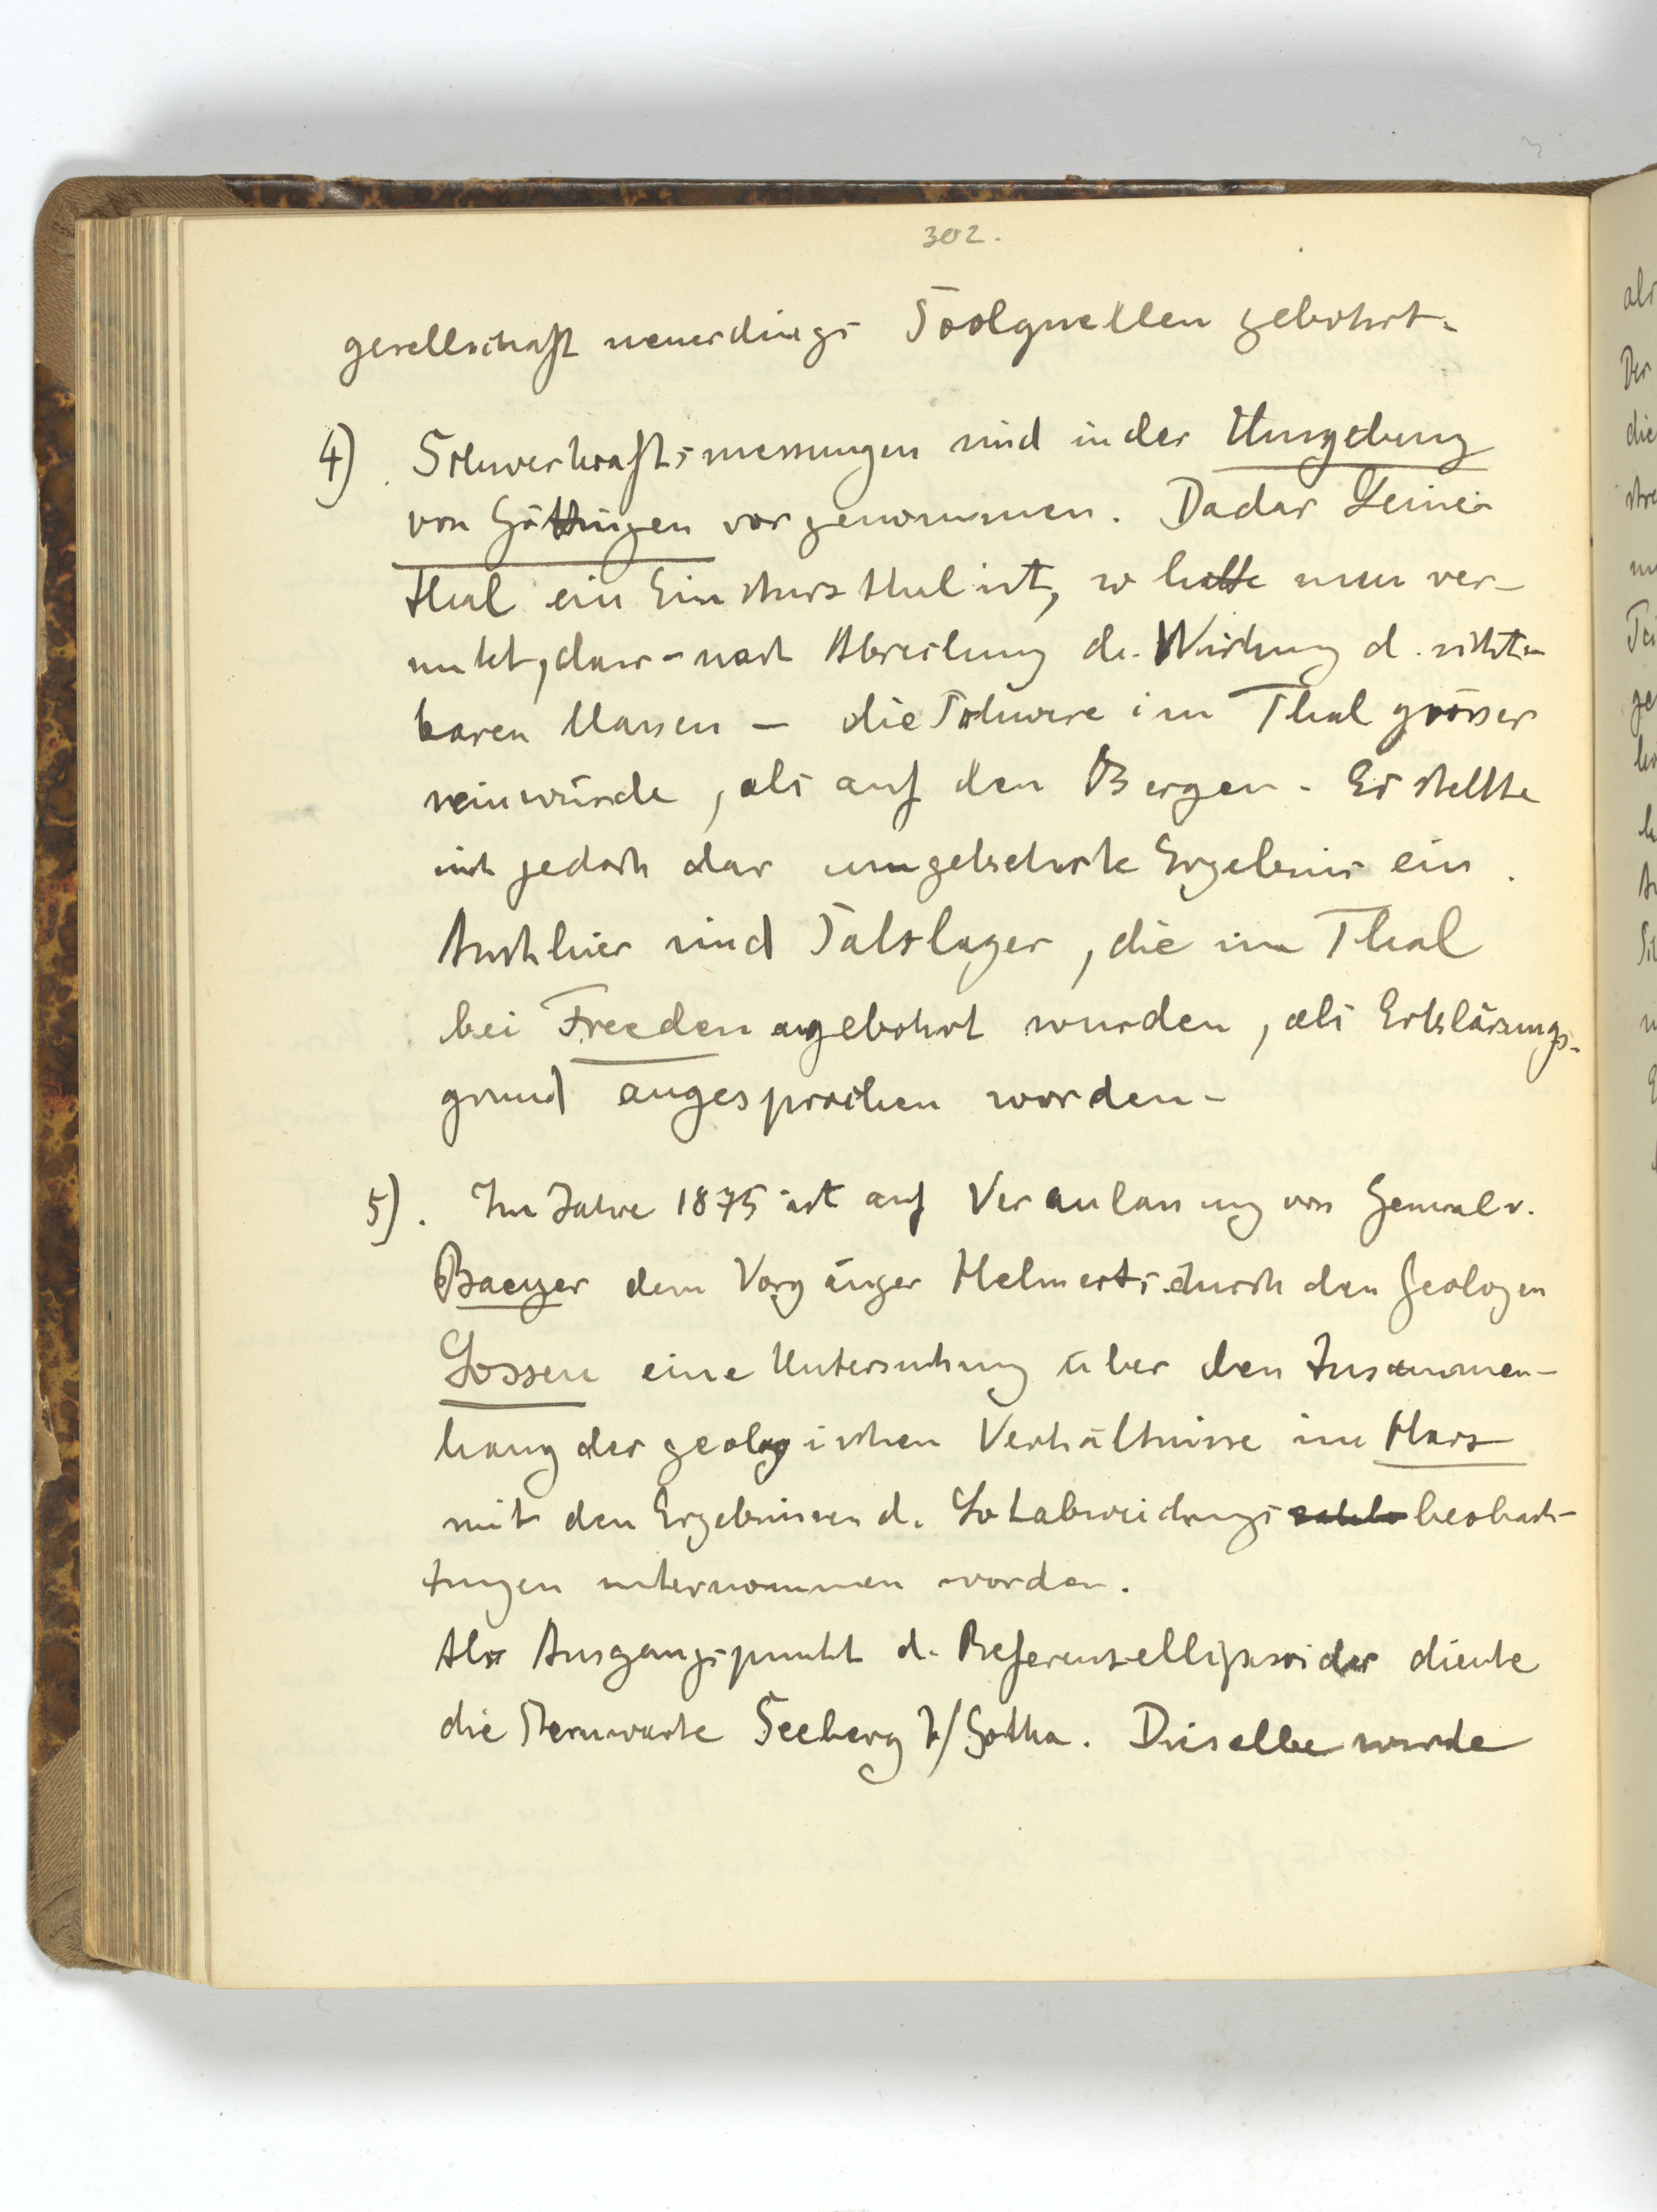 302.
gesellschaft neuerdings Soolquellen gebohrt.
4) Schwerkraftsmessungen sind in der Umgebung
von Göttingen vorgenommen. Da das Leine-
thal ein Einsturzthal ist, so hatte man ver-
mutet, dass - nach Abrechnung d. Wirkung d. sicht-
baren Massen - die Schwere im Thal grösser
sein würde, als auf den Bergen. Es stellte
sich jedoch das umgekehrte Ergebnis ein.
Auch hier sind Salzlager, die im Thal
bei Freden angebohrt wurden, als Erklärungs-
grund angesprochen worden.
5). Im Jahre 1875 ist auf Veranlassung von General v.
Baeyer dem Vorgänger Helmerts durch den Geologen
Lossen eine Untersuchung über den Zusammen-
hang der geologischen Verhältnisse im Harz
mit den Ergebnissen d. Lotabweichungs beobach-
tungen unternommen worden.
Als Ausgangspunkt d. Referenzellipsoides diente
die Sternwarte Seeberg b/Gotha. Dieselbe wurde
als
Der
die